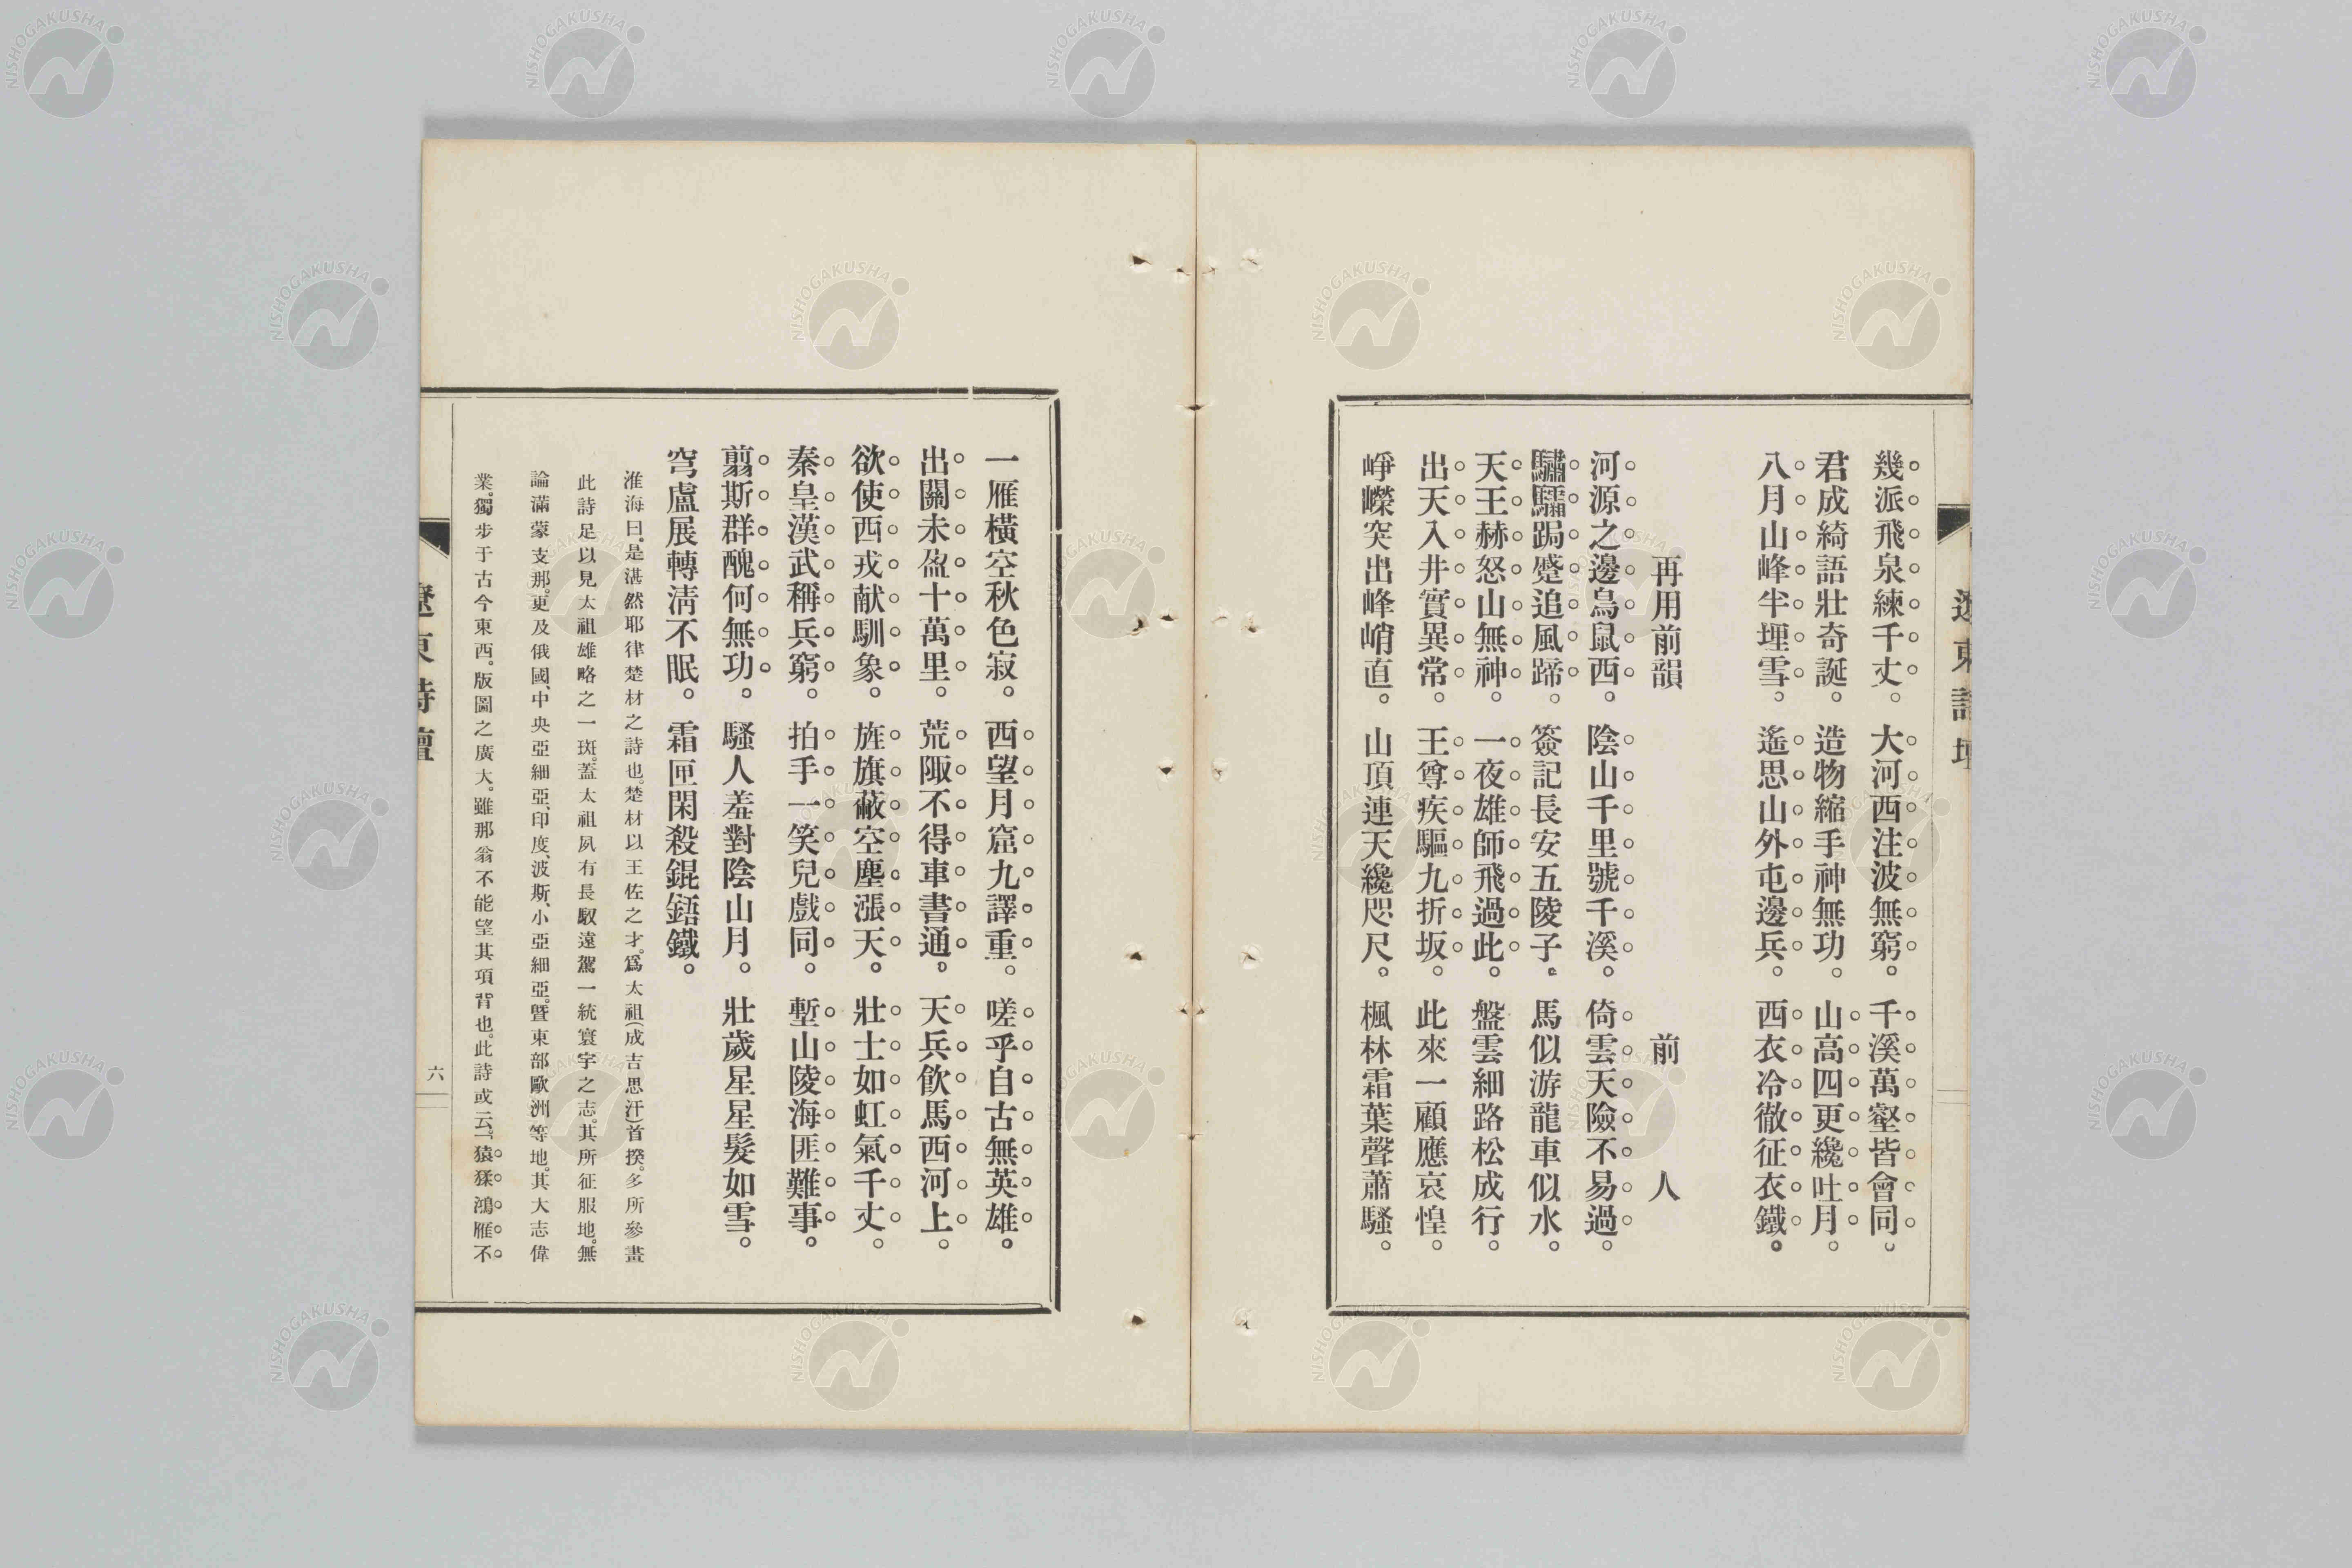 幾派飛泉練千丈。大河西注波無窮。千溪萬壑皆會同。
君成綺語壯奇誕。造物縮手神無功。山高四更纔吐月。
八月山峰半埋雪。遙思山外屯邊兵。西衣冷徹征衣鐵。
再用前韻　前人
河源之邊鳥鼠西。陰山千里號千溪。倚雲天險不易過。
驌驦跼蹙追風蹄。簽記長安五陵子。馬似游龍車似水。
天王赫怒山無神。一夜雄師飛過此。盤雲細路松成行。
出天入井實異常。王尊疾驅九折坂。此來一顧應哀惶。
崢嶸突出峰峭直。山頂連天纔咫尺。楓林霜葉聲蕭騷。
遼東詩壇
一雁橫空秋色寂。西望月窟九譯重。嗟乎自古無英雄。
出關未盈十萬里。荒陬不得車書通。天兵飮馬西河上。
欲使西戎献馴象。旌旗蔽空塵漲天。壯士如虹氣千丈。
秦皇漢武稱兵窮。拍手一笑兒戲同。塹山陵海匪難事。
翦斯群醜何無功。騷人羞對陰山月。壯歲星星髮如雪。
穹盧展轉淸不眠。霜匣閑殺錕鋙鐵。
淮海曰。是湛然耶律楚材之詩也。楚材以王佐之才。爲太祖(成吉思汗)首揆。多所參畫
此詩足以見太祖雄略之一斑。蓋太祖夙有長馭遠駕一統寰宇之志。其所征服地。無
論滿蒙支那。更及俄國、中央亞細亞、印度、波斯、小亞細亞。曁東部歐洲等地。其大志偉
業。獨步于古今東西。版圖之廣大。雖那翁不能望其項背也。此詩或云。「猿猱鴻雁不
遼東詩壇
六
NISHOGAKUSHA